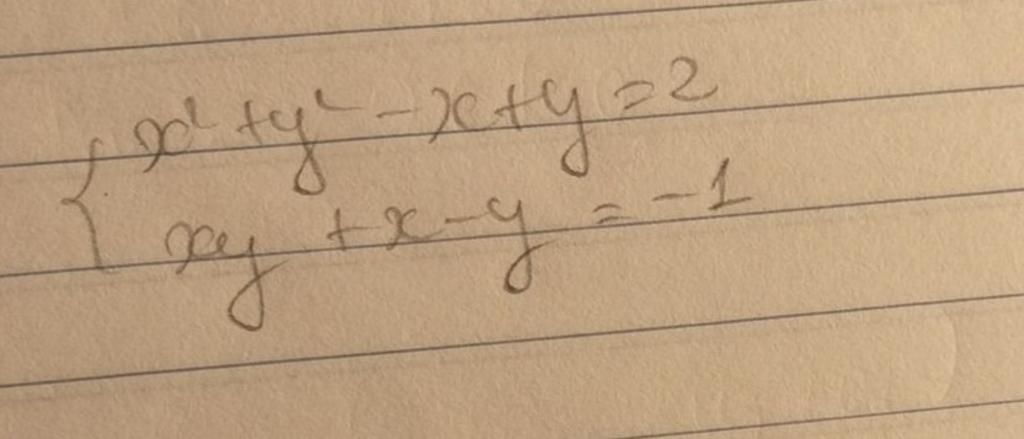 x² + y² - x + y = 2
xy + x - y = -1